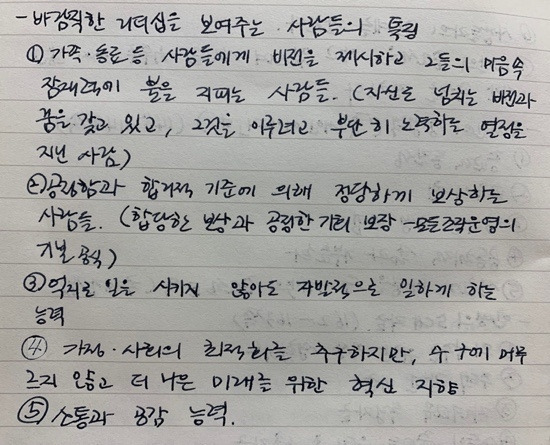 - 바람직한 리더십을 보여주는 사람들의 특징
① 가족·동료 등 사람들에게 비전을 제시하고 그들의 마음속
잠재력에 불을 지피는 사람들. (자신도 넘치는 비전과
꿈을 갖고 있고, 그것을 이루려고 부단히 노력하는 열정을
지닌 사람)
② 공정함과 합리적 기준에 의해 정당하게 보상하는
사람들. (합당한 보상과 공정한 기회 보장 - 모든조직운영의
기본 공식)
③ 억지로 일을 시키지 않아도 자발적으로 일하게 하는
능력
④ 가정·사회의 최적화를 추구하지만, 수구에 머무
르지 않고 더 나은 미래를 위한 혁신 지향
⑤ 소통과 공감 능력.